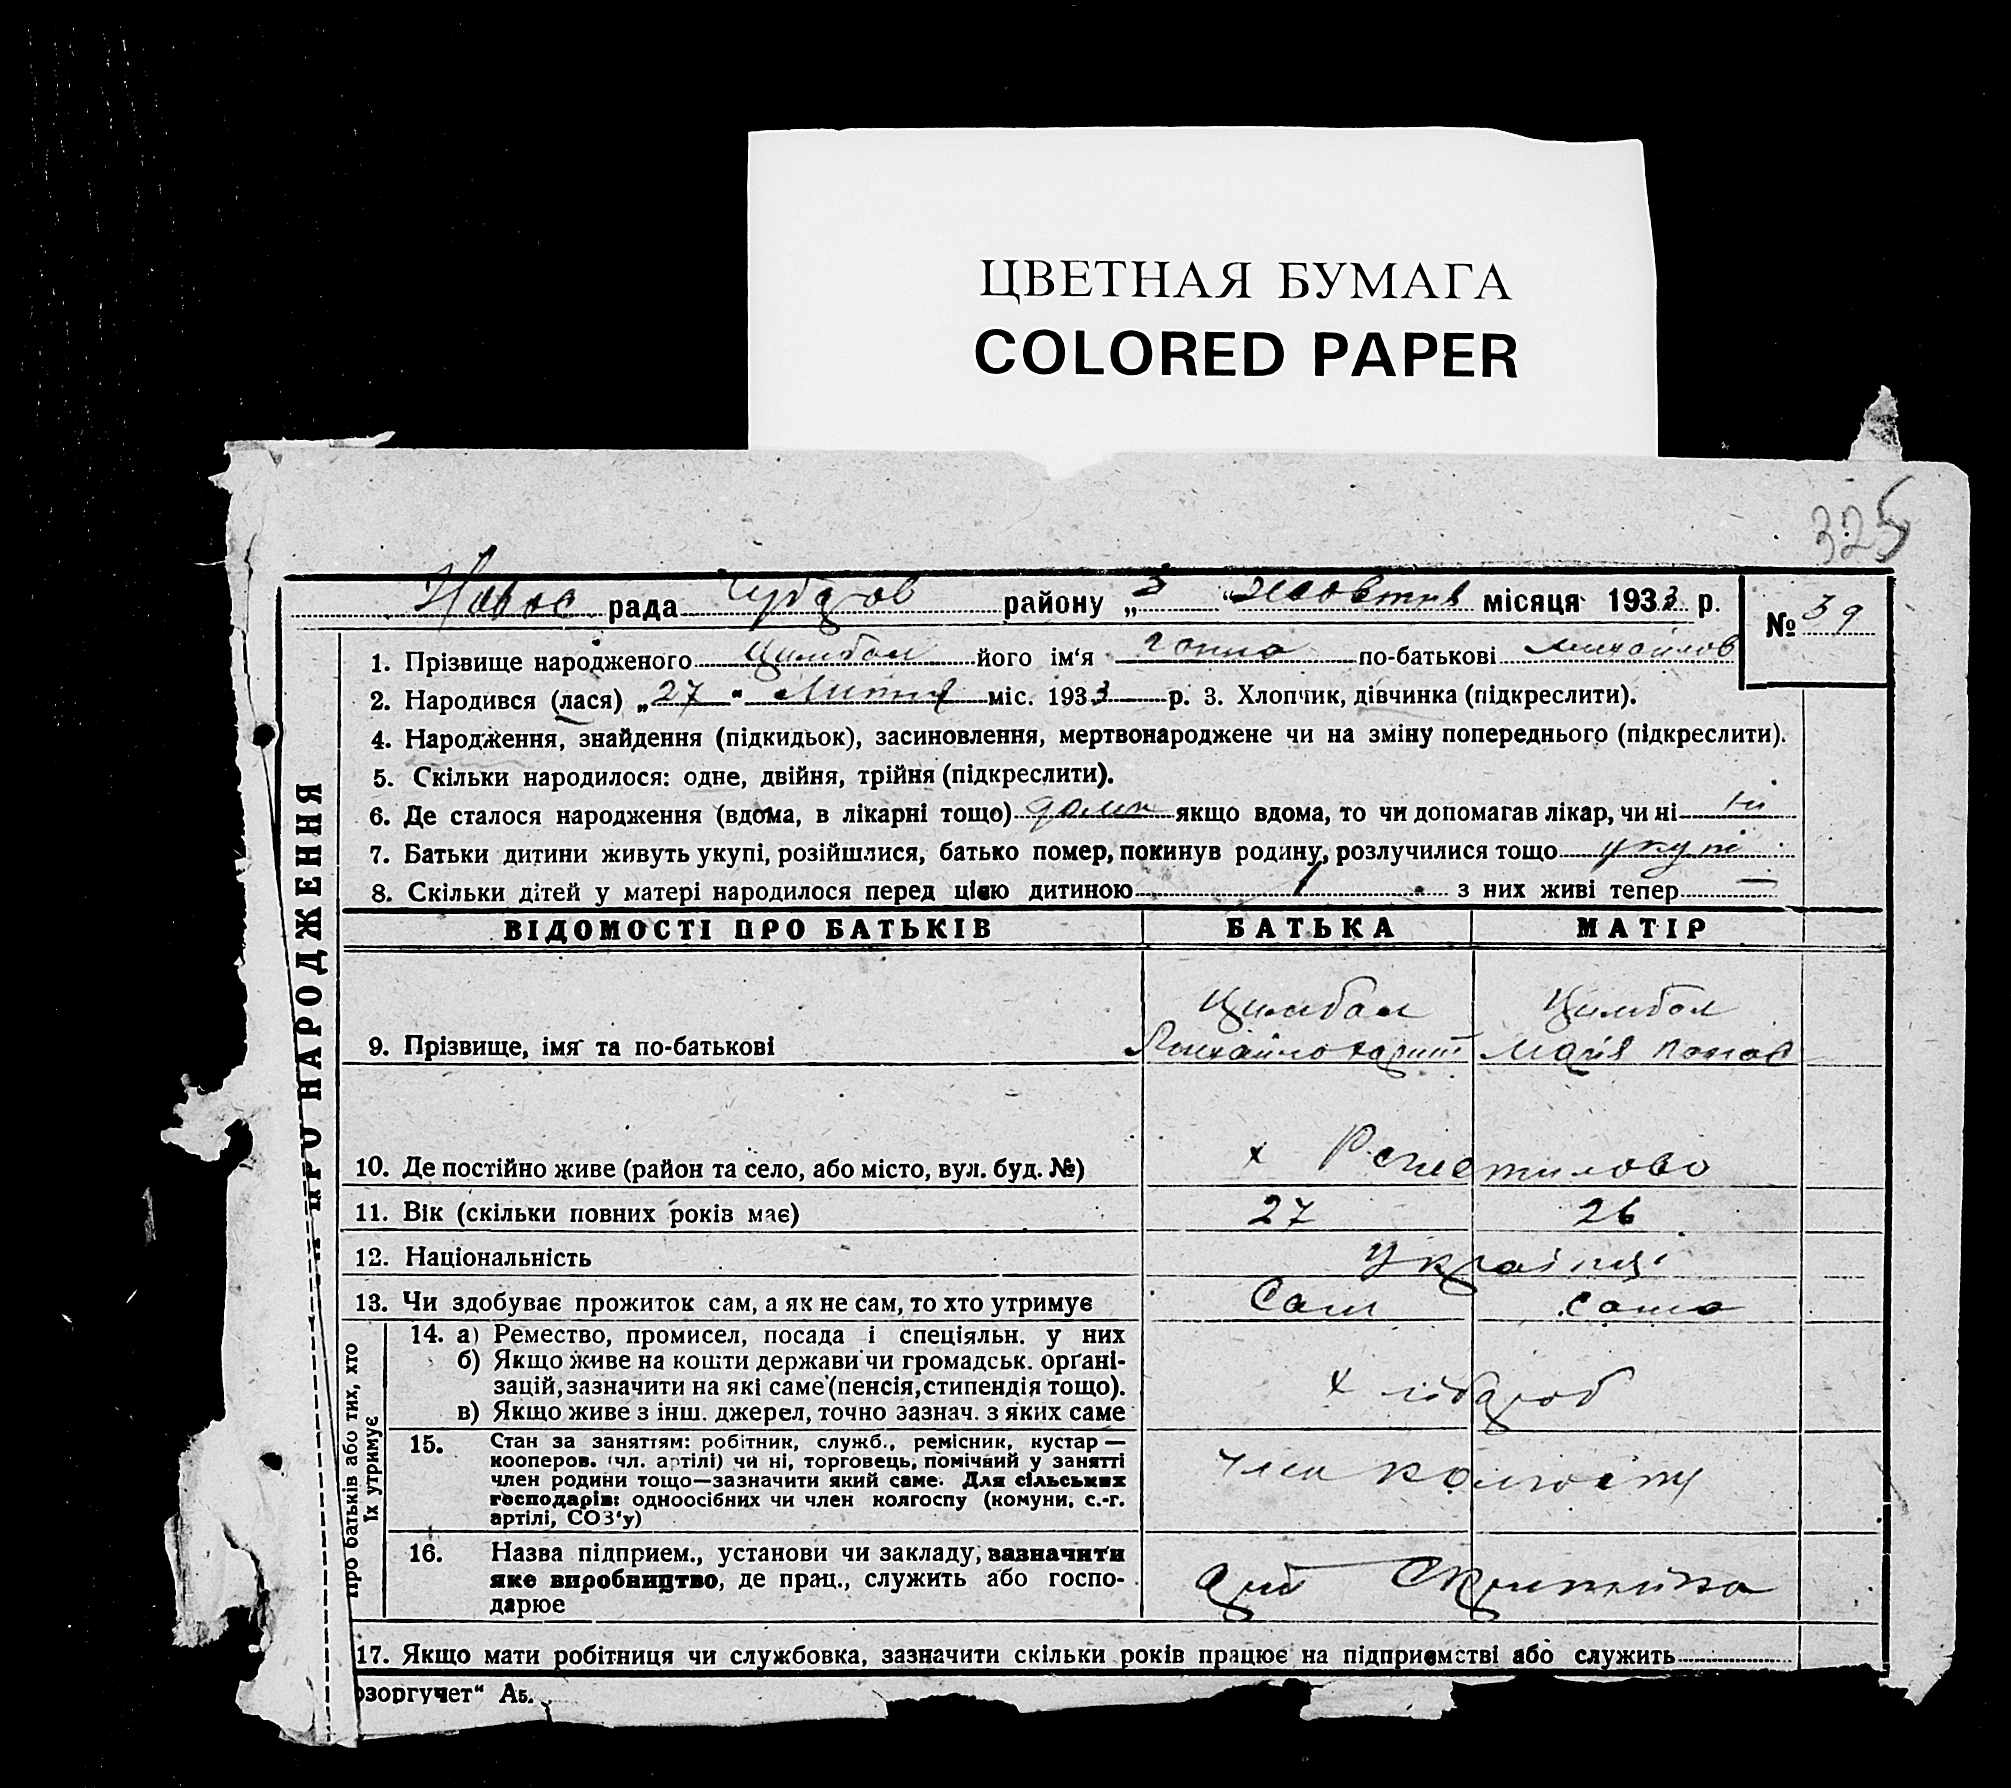 ЦВЕТНАЯ БУМАГА
COLORED PAPER
325
рада Чубар району „3 “ Жовтня місяця 1933 р.
№ 39
1. Прізвище народженого Цимбал його ім‘я Ганна по-батькові Михайлов
2. Народився (лася) „27 “ Липня міс. 1933 р. 3. Хлопчик, дівчинка (підкреслити).
4. Народження, знайдення (підкидьок), засиновлення, мертвонароджене чи на зміну попереднього (підкреслити).
5. Скільки народилося: одне, двійня, трійня (підкреслити).
6. Де сталося народження (вдома, в лікарні тощо) дома якщо вдома, то чи допомагав лікар, чи ні ні
7. Батьки дитини живуть укупі, розійшлися, батько помер, покинув родину, розлучилися тощо укупі
8. Скільки дітей у матері народилося перед цією дитиною 1 з них живі тепер —
ВІДОМОСТІ ПРО БАТЬКІВ БАТЬКА МАТІР
Цимбал Цимбал
9. Прізвище, імя та по-батькові Михайло Марія Панас
10. Де постійно живе (район та село, або місто, вул. буд. №) х
11. Вік (скільки повних років має) 27 26
12. Національність Українці
13. Чи здобуває прожиток сам, а як не сам, то хто утримує Сам сама
14. а) Ремество, промисел, посада і спеціяльн. у них
б) Якщо живе на кошти держави чи громадськ. органі-
зацій, зазначити на які саме (пенсія, стипендія тощо).
х хлібороб
в) Якщо живе з інш. джерел, точно зазнач. з яких саме
15. Стан за заняттям: робітник, служб., ремісник, кустар —
кооперов. (чл. артілі) чи ні, торговець, помічний у занятті
член родини тощо—зазначити який саме. Для сільських
господарів: одноосібних чи член колгоспу (комуни, с.-г.
артілі, СОЗ‘у)
член колгоспу
16. Назва підприєм., установи чи закладу, зазначити
яке виробництво, де прац., служить або госпо-
дарює
арт Скрипника
17. Якщо мати робітниця чи службовка, зазначити скільки років працює на підприємстві або служить
озоргучет“ Аб.
ПРО НАРОДЖЕННЯ
Про батьків або тих, хто
їх утримує